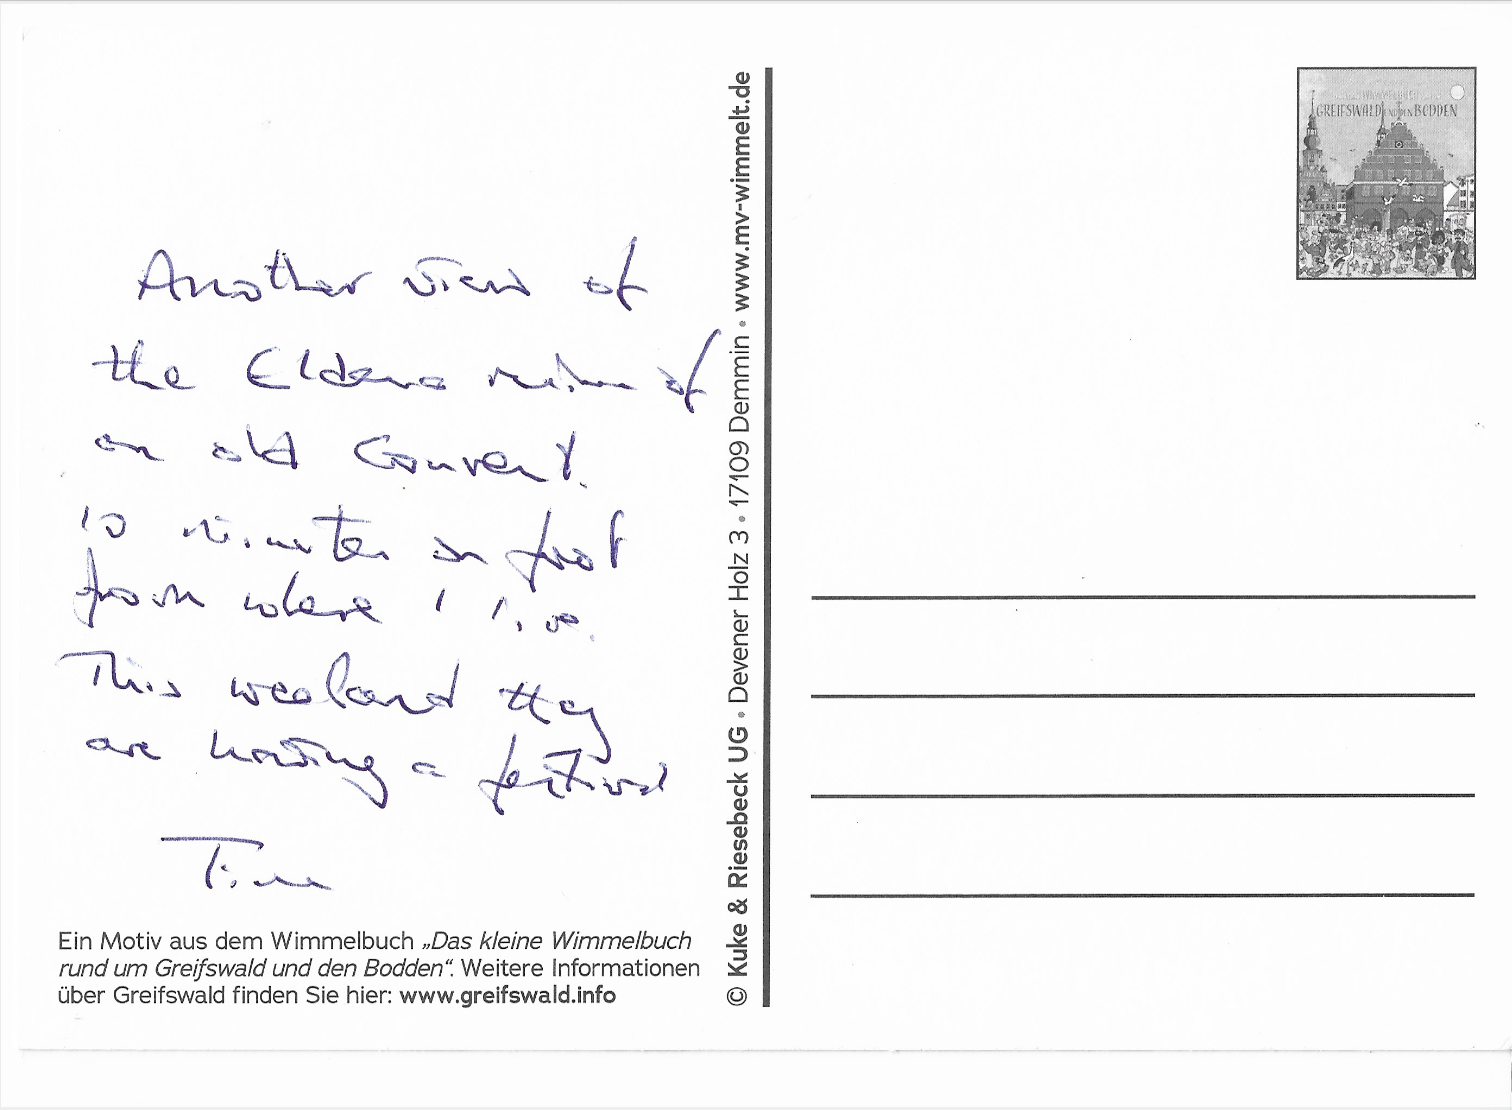 Another view of
the Eldena ruin of
an old Convent.
10 minutes on foot
from where I live.
This weekend they
are having a festival
Tim
Ein Motiv aus dem Wimmelbuch „Das kleine Wimmelbuch
rund um Greifswald und den Bodden“. Weitere Informationen
über Greifswald finden Sie hier: www.greifswald.info
© Kuke & Riesebeck UG • Devener Holz 3 • 17109 Demmin • www.mv-wimmelt.de
WIMMELBUCH
GREIFSWALD UND DEN BODDEN